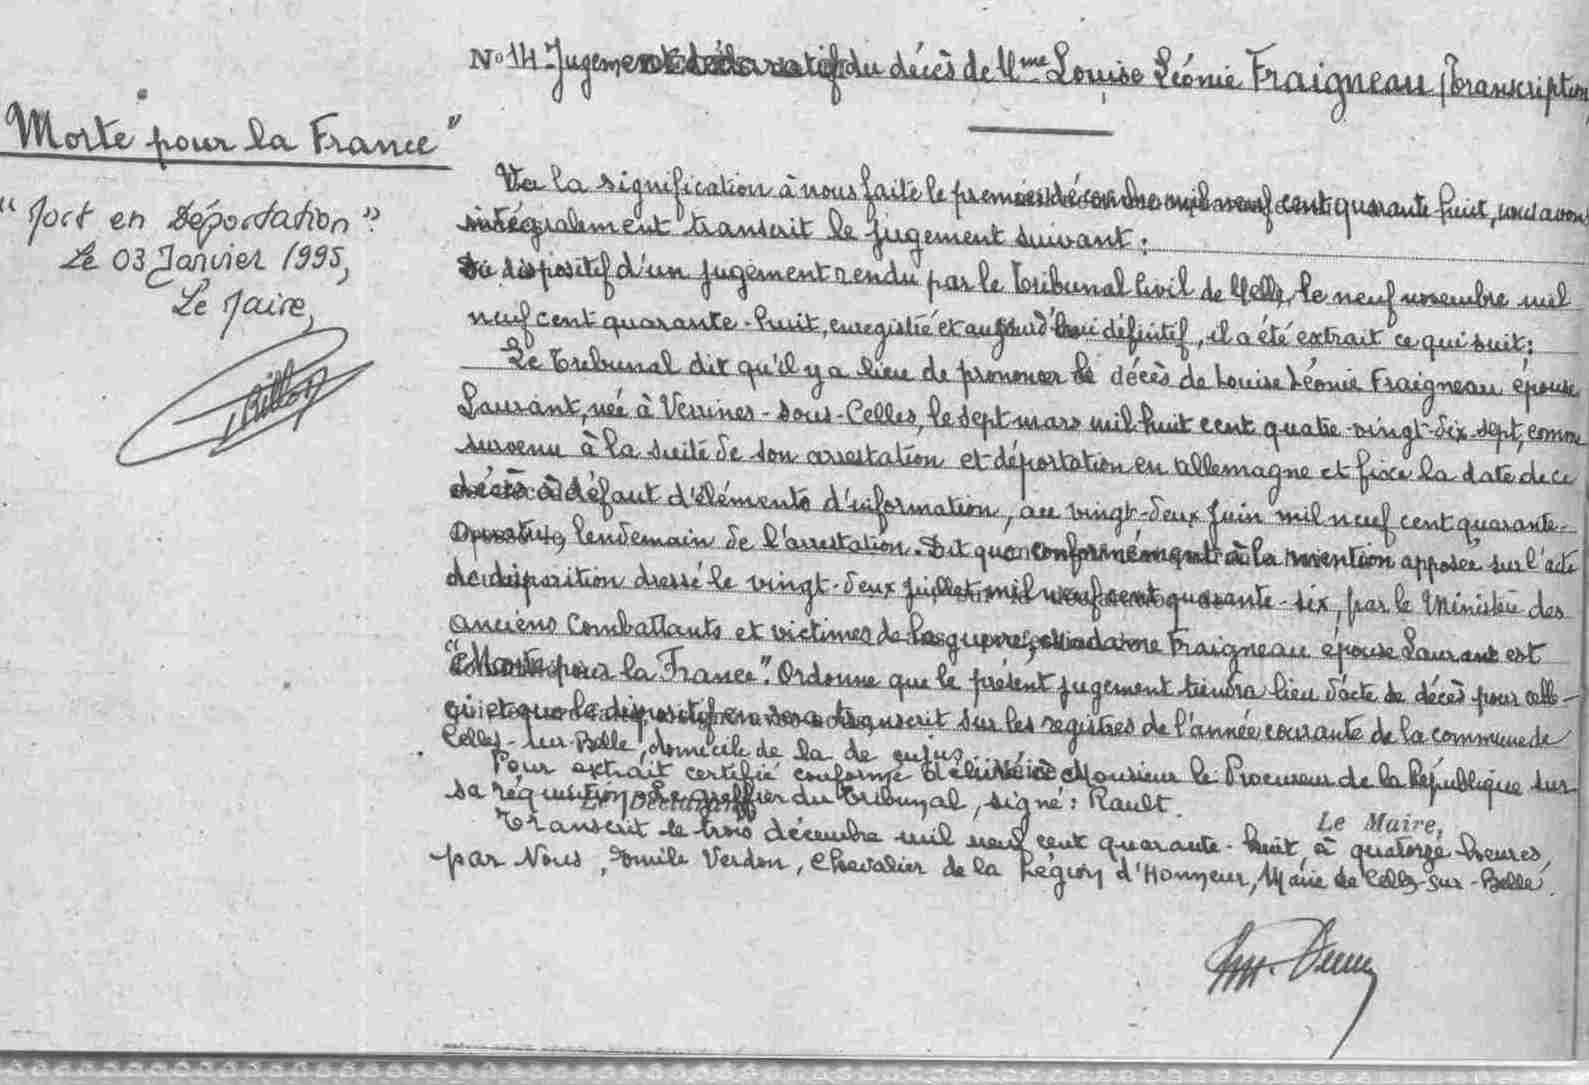 No 14 Jugement déclaratif du décès de Mme Louise Léonie Fraigneau (Transcription)
"Morte pour la France"
"Mort en Déportation".
Le 03 Janvier 1995,
Le Maire,
Vu la signification à nous faite le premier décembre mil neuf cent quarante huit, nous avons
intégralement transcrit le jugement suivant :
Du dispositif d'un jugement rendu par le Tribunal Civil de Melle, le neuf novembre mil
neuf cent quarante-huit, enregistré et aujourd'hui définitif, il a été extrait ce qui suit :
Le Tribunal dit qu'il y a lieu de prononcer le décès de Louise Léonie Fraigneau épouse
Laurant, née à Verrines-sous-Celles, le sept mars mil huit cent quatre-vingt-dix-sept, comme
survenu à la suite de son arrestation et déportation en Allemagne et fixe la date de ce
décès à défaut d'éléments d'information, au vingt-deux Juin mil neuf cent quarante-
quatre, lendemain de l'arrestation. Dit que conformément à la mention apposée sur l'acte
de disparition dressé le vingt-deux juillet mil neuf cent quarante-six, par le Ministère des
Anciens Combattants et victimes de la guerre, Madame Fraigneau épouse Laurant est
"Morte pour la France". Ordonne que le présent jugement tiendra lieu d'acte de décès pour celle-
ci et que le dispositif en sera transcrit sur les registres de l'année courante de la commune de
Celles-sur-Belle, domicile de la de cujus.
Pour extrait certifié conforme délivré à Monsieur le Procureur de la République sur
sa réquisition. Le Greffier du Tribunal, signé : Rault.
Le Maire,
Transcrit le trois décembre mil neuf cent quarante-huit, à quatorze heures,
par Nous, Emile Verdon, Chevalier de la Légion d'Honneur, Maire de Celles-sur-Belle.